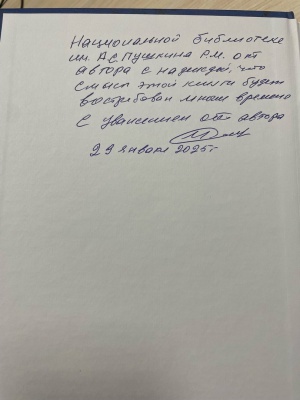 Национальной библиотеке
им. А.С.Пушкина Р.М. от
автора с надеждой, что
смысл этой книги будет
востребован много времени
С уважением от автора
29 января 2025 г